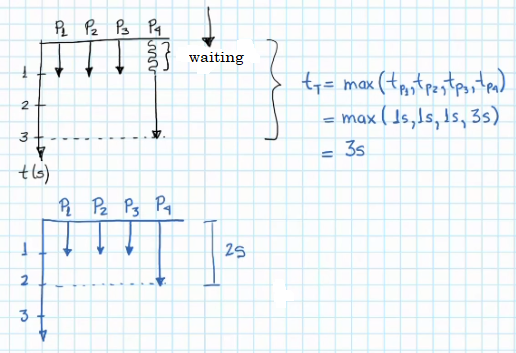 P1 P2 P3 P4
waiting
1
2
3
t(s)
tT = max(tP1, tP2, tP3, tP4)
= max(1s, 1s, 1s, 3s)
= 3s
P1 P2 P3 P4
1
2
3
2s